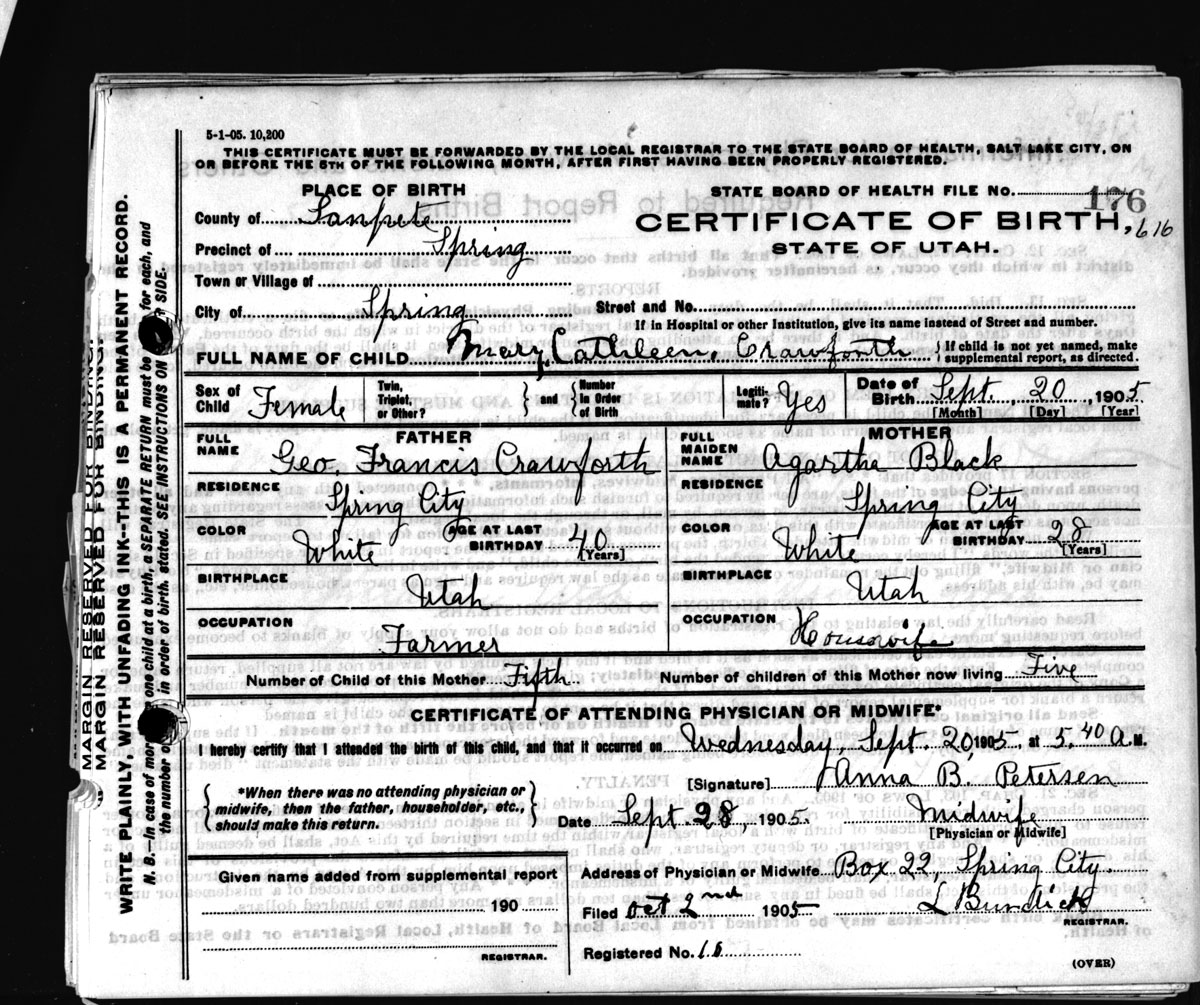 5-1-05. 10,200
THIS CERTIFICATE MUST BE FORWARDED BY THE LOCAL REGISTRAR TO THE STATE BOARD OF HEALTH, SALT LAKE CITY, ON
OR BEFORE THE 5TH OF THE FOLLOWING MONTH, AFTER FIRST HAVING BEEN PROPERLY REGISTERED.
PLACE OF BIRTH
County of Sanpete
Precinct of Spring
Town or Village of
City of Spring
STATE BOARD OF HEALTH FILE No. 176
CERTIFICATE OF BIRTH, 616
STATE OF UTAH.
Street and No.
If in Hospital or other Institution, give its name instead of Street and number.
FULL NAME OF CHILD Mary Cathleen Crawforth { If child is not yet named, make supplemental report, as directed.
Sex of Child Female Twin, Triplet, or Other? } and { Number in Order of Birth Legitimate? Yes Date of Birth Sept. 20, 1905
[Month] [Day] [Year]
FATHER
FULL NAME Geo. Francis Crawforth
RESIDENCE Spring City
COLOR White AGE AT LAST BIRTHDAY 40 [Years]
BIRTHPLACE Utah
OCCUPATION Farmer
MOTHER
FULL MAIDEN NAME Agartha Black
RESIDENCE Spring City
COLOR White AGE AT LAST BIRTHDAY 28 [Years]
BIRTHPLACE Utah
OCCUPATION Housewife
Number of Child of this Mother Fifth Number of children of this Mother now living Five
CERTIFICATE OF ATTENDING PHYSICIAN OR MIDWIFE*
I hereby certify that I attended the birth of this child, and that it occurred on Wednesday, Sept. 20, 1905, at 5.40 A.M.
[Signature] Anna B. Petersen
{ *When there was no attending physician or midwife, then the father, householder, etc., should make this return. }
Date Sept 28, 1905. Midwife
[Physician or Midwife]
Given name added from supplemental report
190
REGISTRAR.
Address of Physician or Midwife Box 22, Spring City.
Filed Oct 2nd 1905 L Burdick
REGISTRAR.
Registered No.
(OVER)
MARGIN RESERVED FOR BINDING.
MARGIN RESERVED FOR BINDING.
WRITE PLAINLY, WITH UNFADING INK--THIS IS A PERMANENT RECORD.
N. B.--In case of more one child at a birth, a SEPARATE RETURN must be for each, and
the number o in order of birth, stated. SEE INSTRUCTIONS O SIDE.